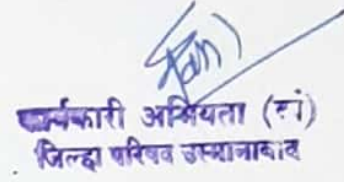 कार्यकारी अभियंता (बां)
जिल्हा परिषद उस्मानाबाद